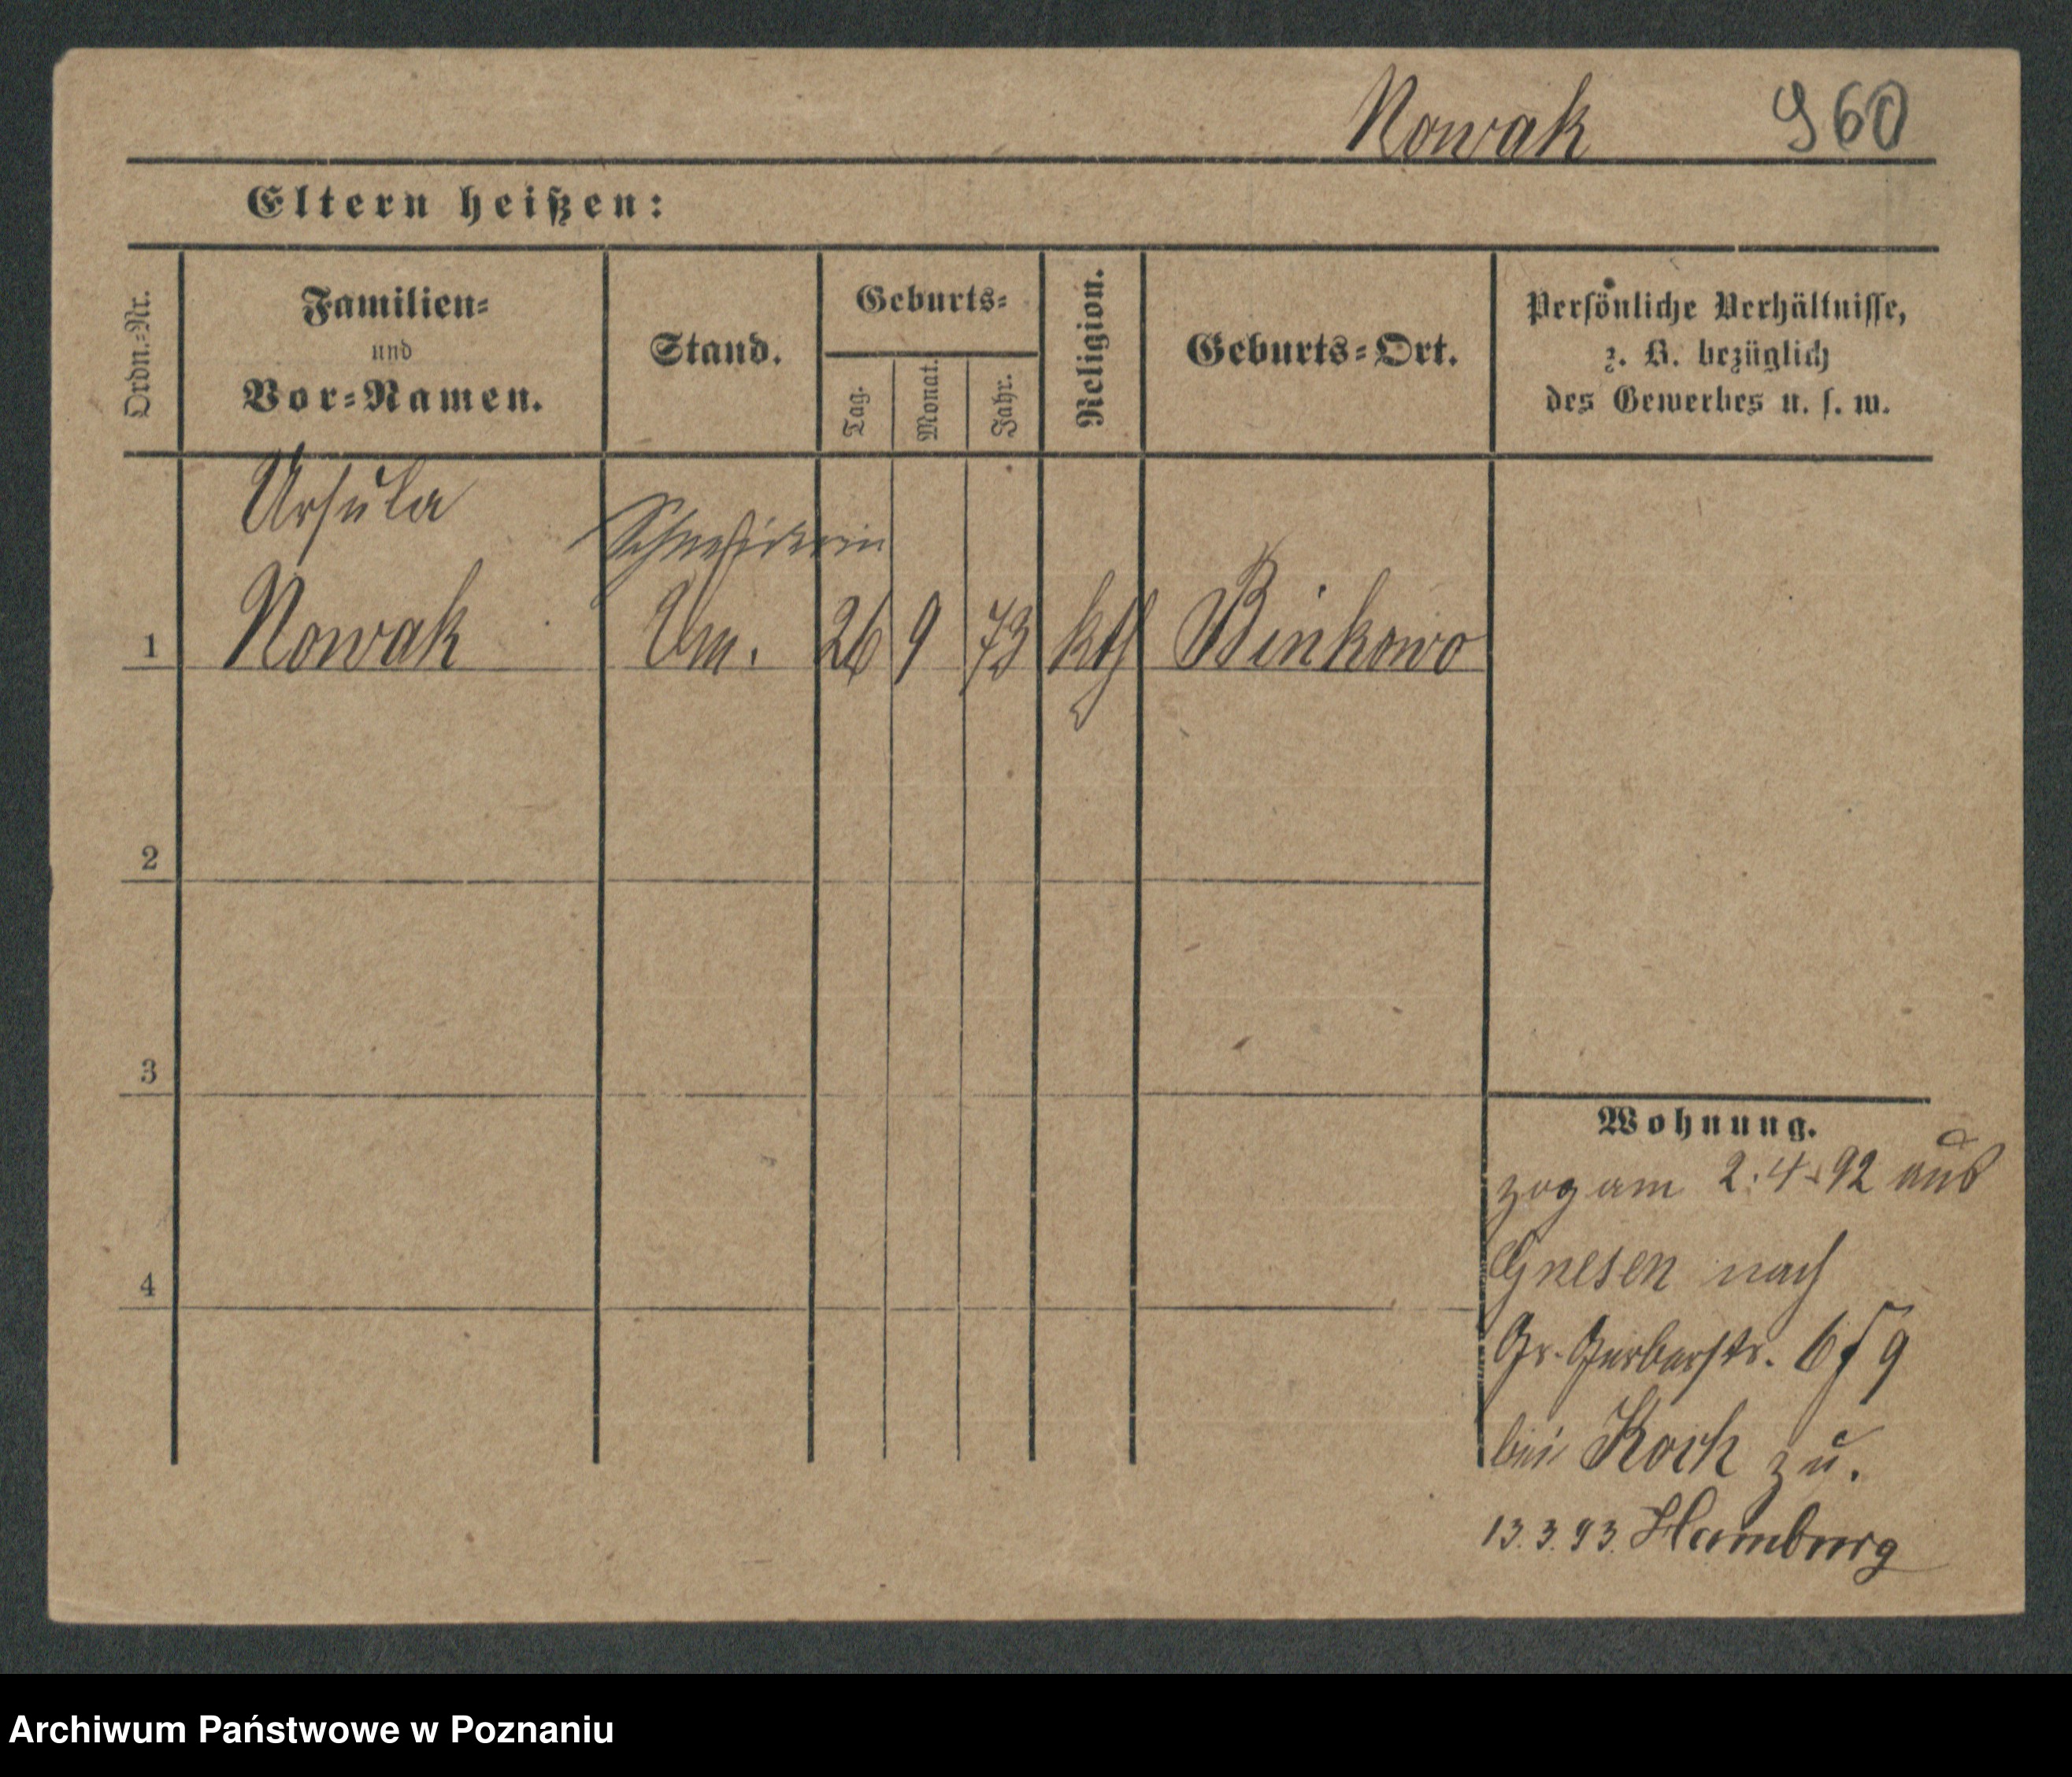 Nowak 960
Eltern heißen:
Ordn.-Nr.
Familien-
und
Vor-Namen.
Stand.
Geburts-
Tag.
Monat.
Jahr.
Religion.
Geburts-Ort.
Persönliche Verhältnisse,
z. B. bezüglich
des Gewerbes u. s. w.
Ursula
1 Nowak 26 9 73 kth Binkowo
2
3
4
Wohnung.
zog am 2.4.92 aus
Gnesen nach
Gr. Gerberstr. 6 f 9
bei Koch zu.
13.3.93. Hamburg
Archiwum Państwowe w Poznaniu